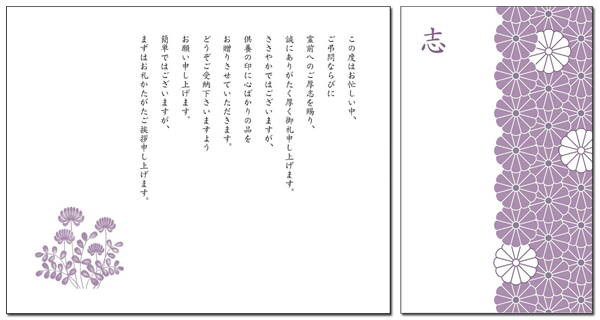 この度はお忙しい中、
ご弔問ならびに
霊前へのご厚志を賜り、
誠にありがたく厚く御礼申し上げます。
ささやかではございますが、
供養の印に心ばかりの品を
お贈りさせていただきます。
どうぞご受納下さいますよう
お願い申し上げます。
簡単ではございますが、
まずはお礼かたがたご挨拶申し上げます。
志